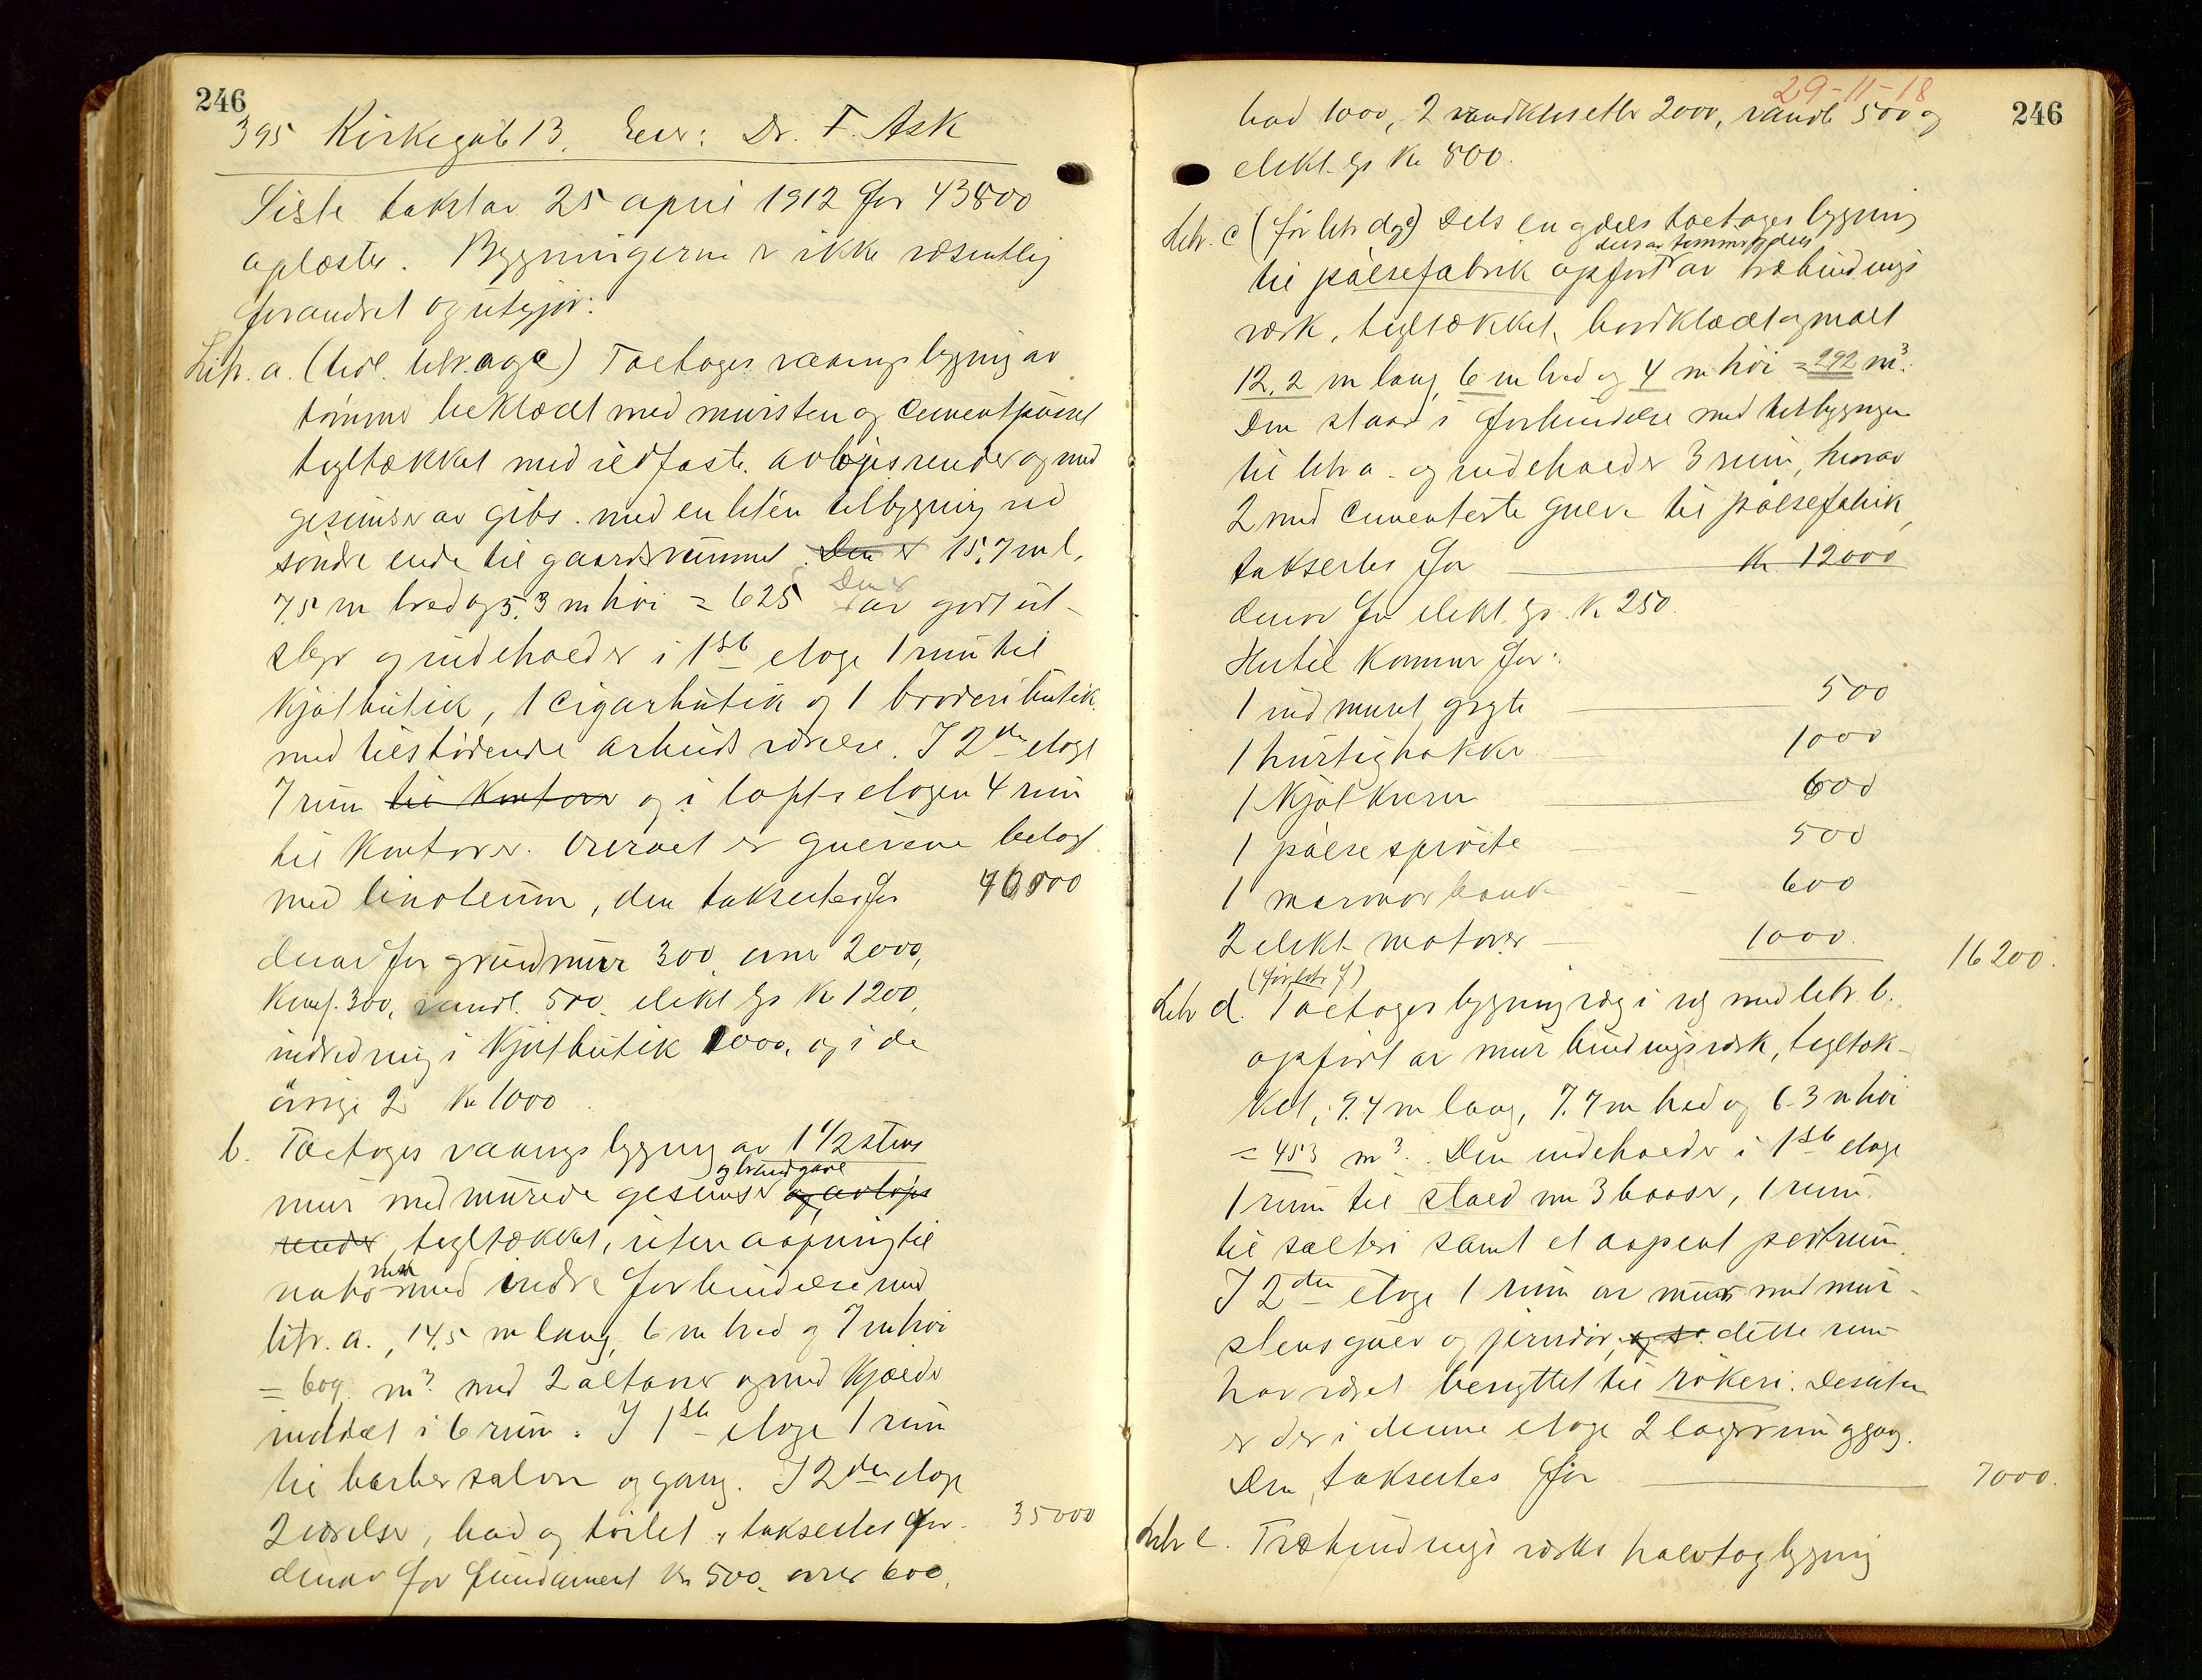 246
395 Kirkegat 13. Eier: Dr. F. Ask
Siste takst av 25 april 1912 for 43800
oplæstes. Bygningerne er ikke væsentlig
forandret og utgjør:
Litr. a. (tidl. litr. a og c) Toetages vaaningsbygning av
tømmer beklædt med mursten og cementpusset
tegltækket med vedfaste avløpsrender og med
gesimser av gibs. med en liten tilbygning ved
søndre ende til gaardsrummet. Den er 15.7 m l,
7,5 m bred og 5.3 m høi = 625 Den er av godt ut-
styr og indeholder i 1ste etage 1 rum til
kjøtbutik, 1 cigarbutik og 1 brodeributik
med tilstødende arbeidsværelse. I 2den etage
7 rum til kontorer og i loftsetagen 4 rum
til kontorer. Overalt er gulvene belagt
med linoleum, den takseres for 70000
derav for grundmur 300, ovne 2000,
komf. 300, vandl. 500, elekt. lys kr 1200,
indredning i kjøtbutik 2000, og i de
øvrige 2 kr 1000.
b. Toetages vaaningsbygning av 1 1/2 stens
og brandgavl
mur med murede gesimser og avløps
render, tegltækket, uten aapning til
nabo men med indre forbindelse med
litr. a., 14,5 m lang, 6 m bred og 7 m høi
= 609 m³. med 2 altaner og med kjælder
inddelt i 6 rum. I 1ste etage 1 rum
til barbersalon og gang. I 2den etage
2 værelser, bad og toilet, takseres for 35000
derav for fundament kr 500, ovner 600,
29-11-18
246
bad 1000, 2 vandklosetter 2000, vandl. 500 og
elekt. lys kr 800.
Litr. c (før litr d og e) Dels en og dels toetages bygning
dels av tømmer og dels
til pølsefabrik opført av træbindings
verk, tegltækket, bordklædt og malt
12,2 m lang, 6 m bred og 4 m høi = 292 m³.
Den staar i forbindelse med tilbygningen
til litr a. og indeholder 3 rum, hvorav
2 med cementerte gulve til pølsefabrik,
takseres for kr 12000
derav for elekt. lys kr 250.
Hertil kommer for:
1 indmuret gryte 500
1 hurtighakker 1000
1 kjøtkvern 600
1 pølsesprøite 500
1 marmorbank 600
2 elekt. motorer 1000. 16200.
(før litr f)
Litr d. Toetages bygning væg i væg med litr. b.
opført av mur bindingsverk, tegltæk-
ket, 9.4 m lang, 7.7 m bred og 6.3 m høi
= 453 m³. Den indeholder i 1ste etage
1 rum til stald m 3 baaser, 1 rum
til salteri samt et aapent portrum.
I 2den etage 1 rum av mur med mur-
stensgulv og jerndør, dette rum
har været benyttet til røkeri. Desuten
er der i denne etage 2 lagerrum og gang.
Den takseres for 7000.
Litr e. Træbindingsverks halvtagbygning